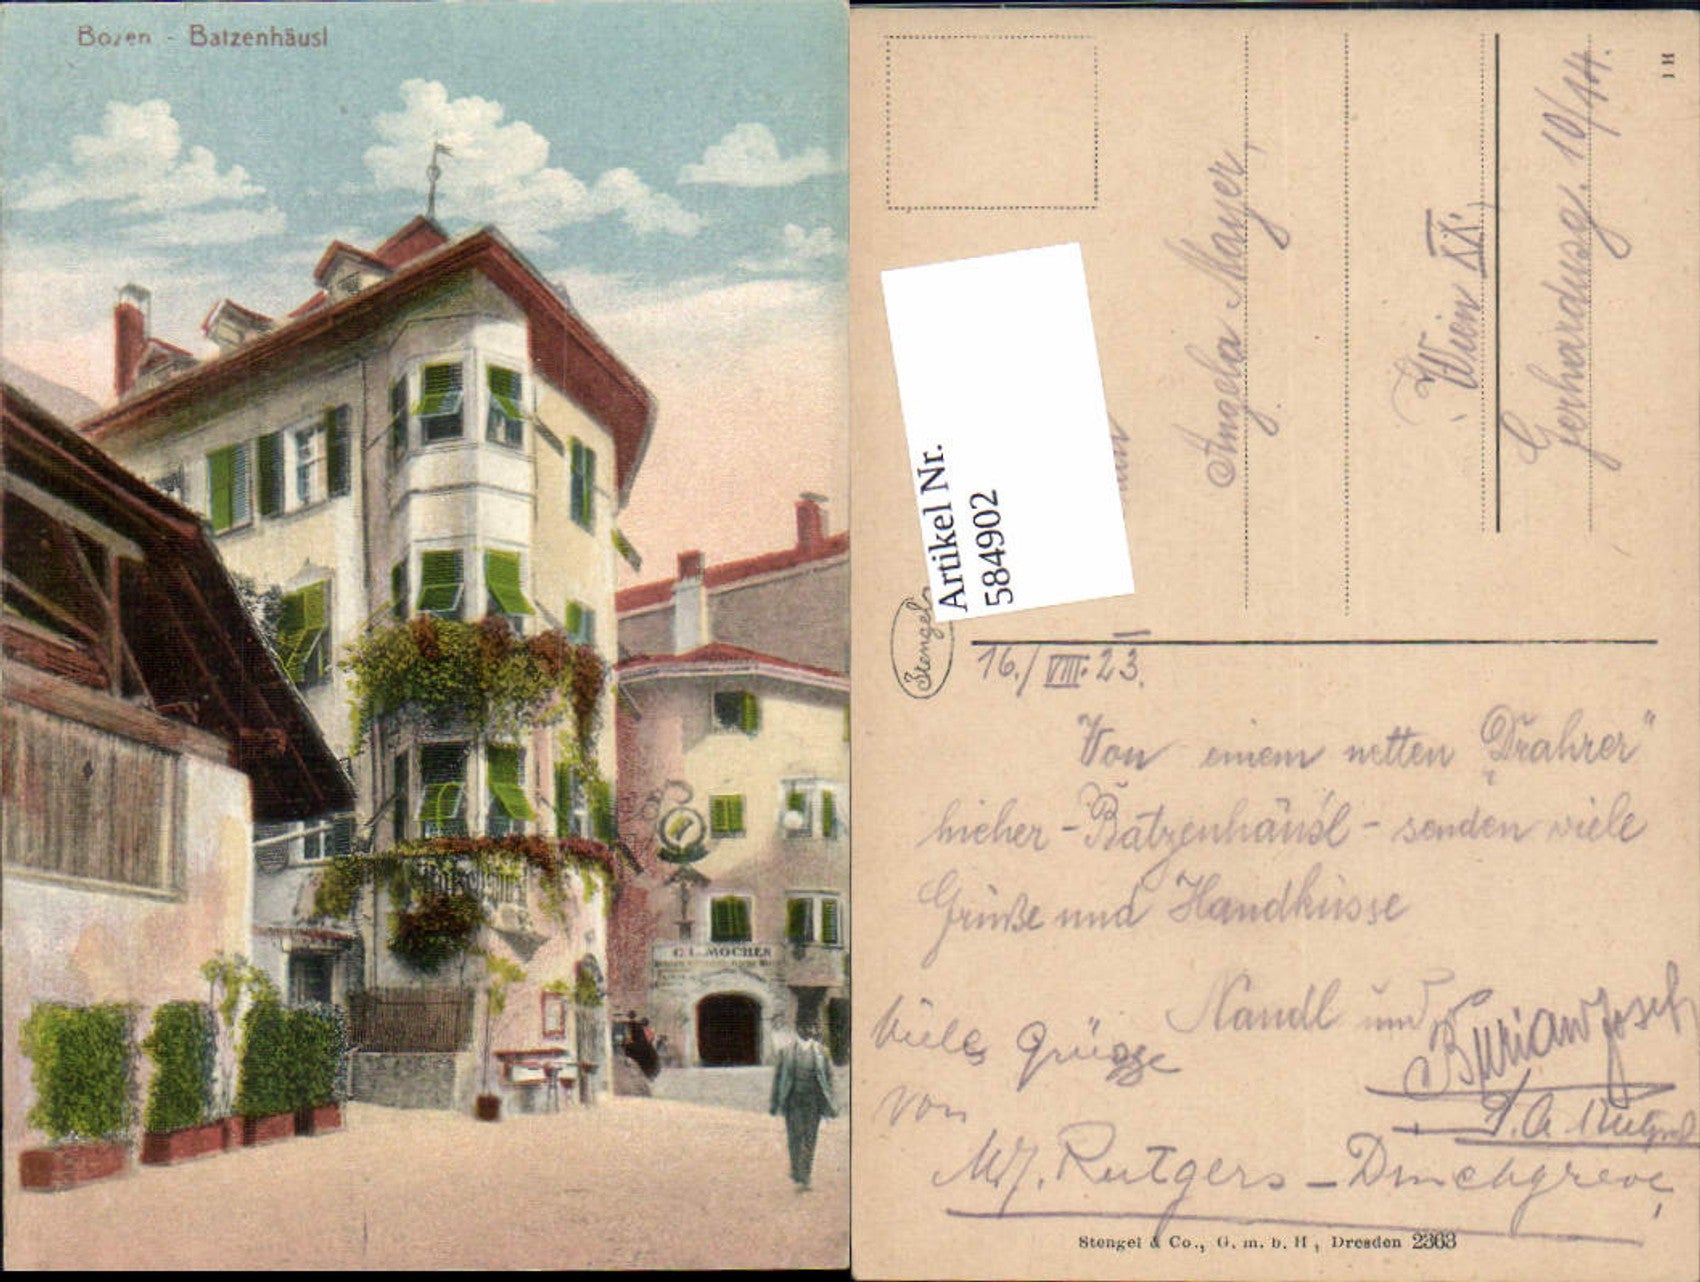 Bozen - Batzenhäusl
Batzenhäusl
C. L. MOCHEN
1 H
Angela Mayer,
Wien XX.
Gerhardusg. 10/14.
Artikel Nr.
584902
Stengel
16./VIII. 23.
Von einem netten "Drahrer"
hieher - Batzenhäusl - senden viele
Grüße und Handküsse
Nandl und
Burian Josef
Viele Grüsze
von
Rutgers -
Stengel & Co., G. m. b. H., Dresden 2363